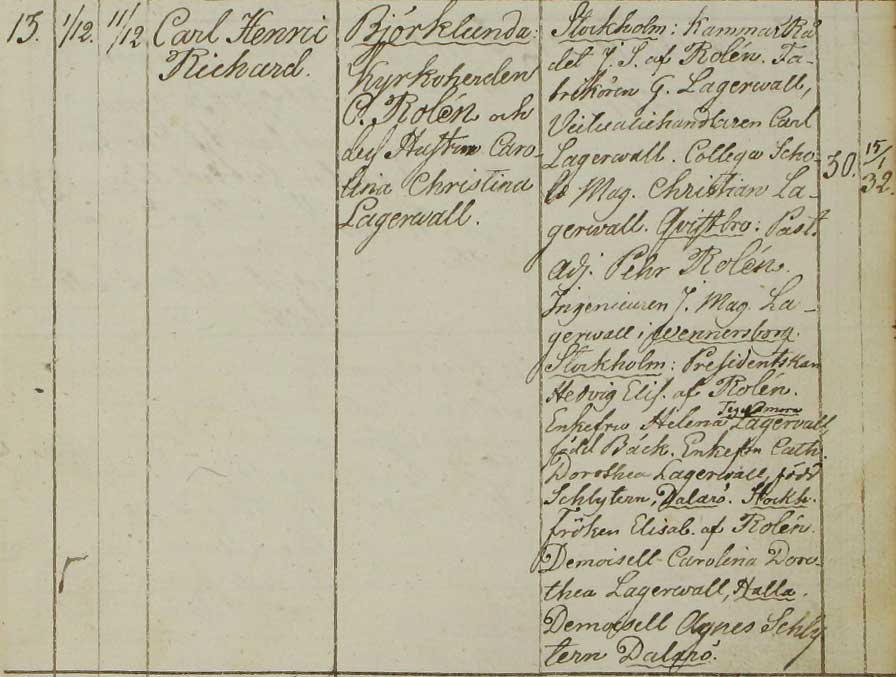 15.
1/12.
11/12
Carl Henric
Richard.
Björklunda:
Kyrkoherden
O. Rolén och
deß Hustru Caro-
lina Christina
Lagerwall.
Stockholm: Kammar Rå
det J. S. af Rolén. Fa-
brikören G. Lagerwall,
Victualiehandlaren Carl
Lagerwall. Collega Scho-
læ Mag. Christian La-
gerwall. Qvistbro: Past.
adj. Pehr Rolén.
Ingenieuren J. Mag. La-
gerwall i Wennersborg.
Stockholm: Presidentskan
Hedvig Elis. af Rolén.
Enkefru Helena Lagerwall,
född Bäck. Enkefru Cath.
Dorothea Lagerwall, född
Schlytern, Dalarö. Stockh.
Fröken Elisab. af Rolén.
Demoisell Carolina Doro-
thea Lagerwall, Halla.
Demoisell Agnes Schly
tern Dalarö.
30.
15/1
32.